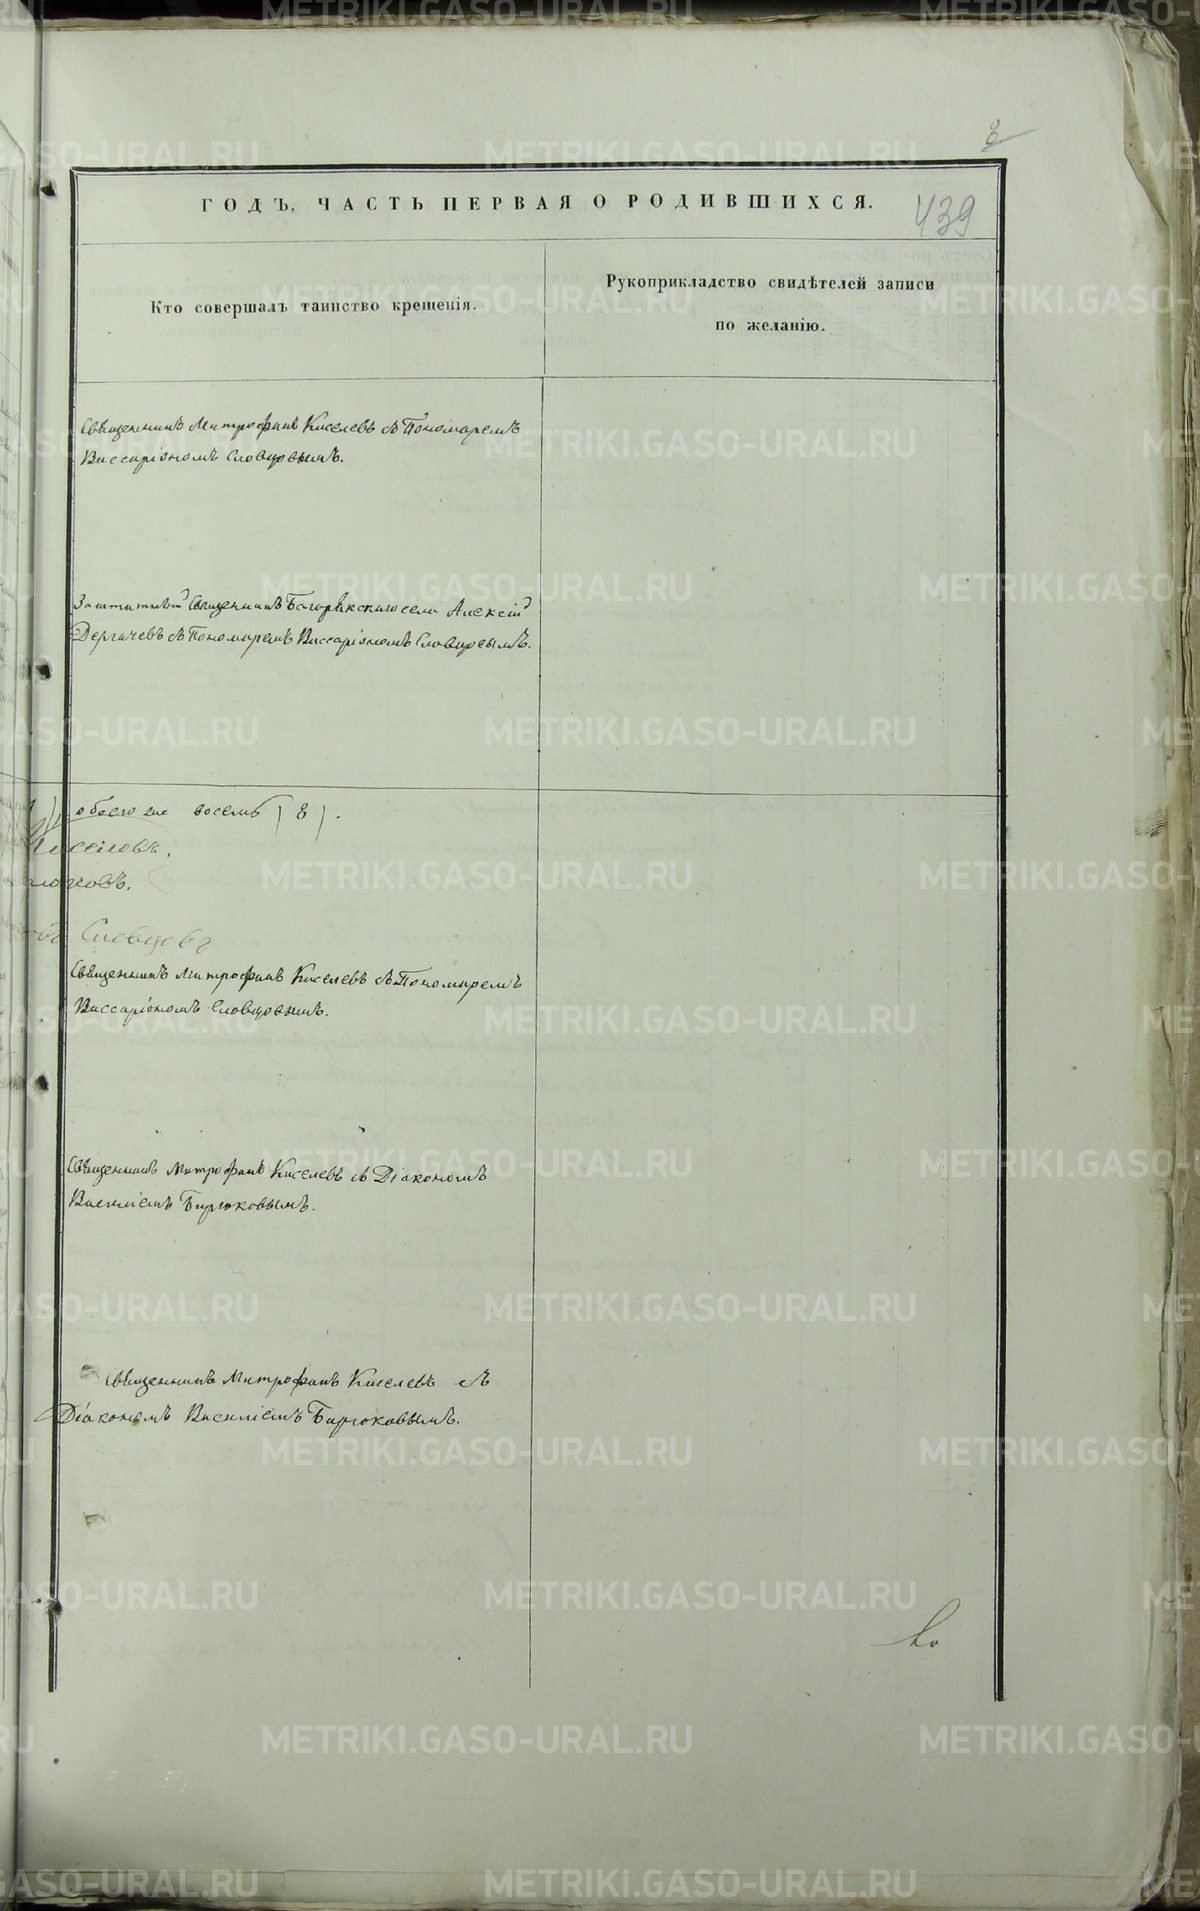 8
ГОДЪ, ЧАСТЬ ПЕРВАЯ О РОДИВШИХСЯ.
439
Кто совершалъ таинство крещенія.
Рукоприкладство свидѣтелей записи
по желанію.
Священникъ Митрофанъ Киселевъ съ Пономаремъ
Виссаріономъ Словцовымъ.
Заштатный Священникъ Багорякскаго села Алексій
Дергачевъ съ Пономаремъ Виссаріономъ Словцовымъ.
обоего же восемь (8).
Киселевъ.
рюковъ.
Словцовъ
Священникъ Митрофанъ Киселевъ съ Пономаремъ
Виссаріономъ Словцовымъ.
Священникъ Митрофанъ Киселевъ съ Діакономъ
Василіемъ Бирюковымъ.
Священникъ Митрофанъ Киселевъ съ
Діакономъ Василіемъ Бирюковымъ.
METRIKI.GASO-URAL.RU